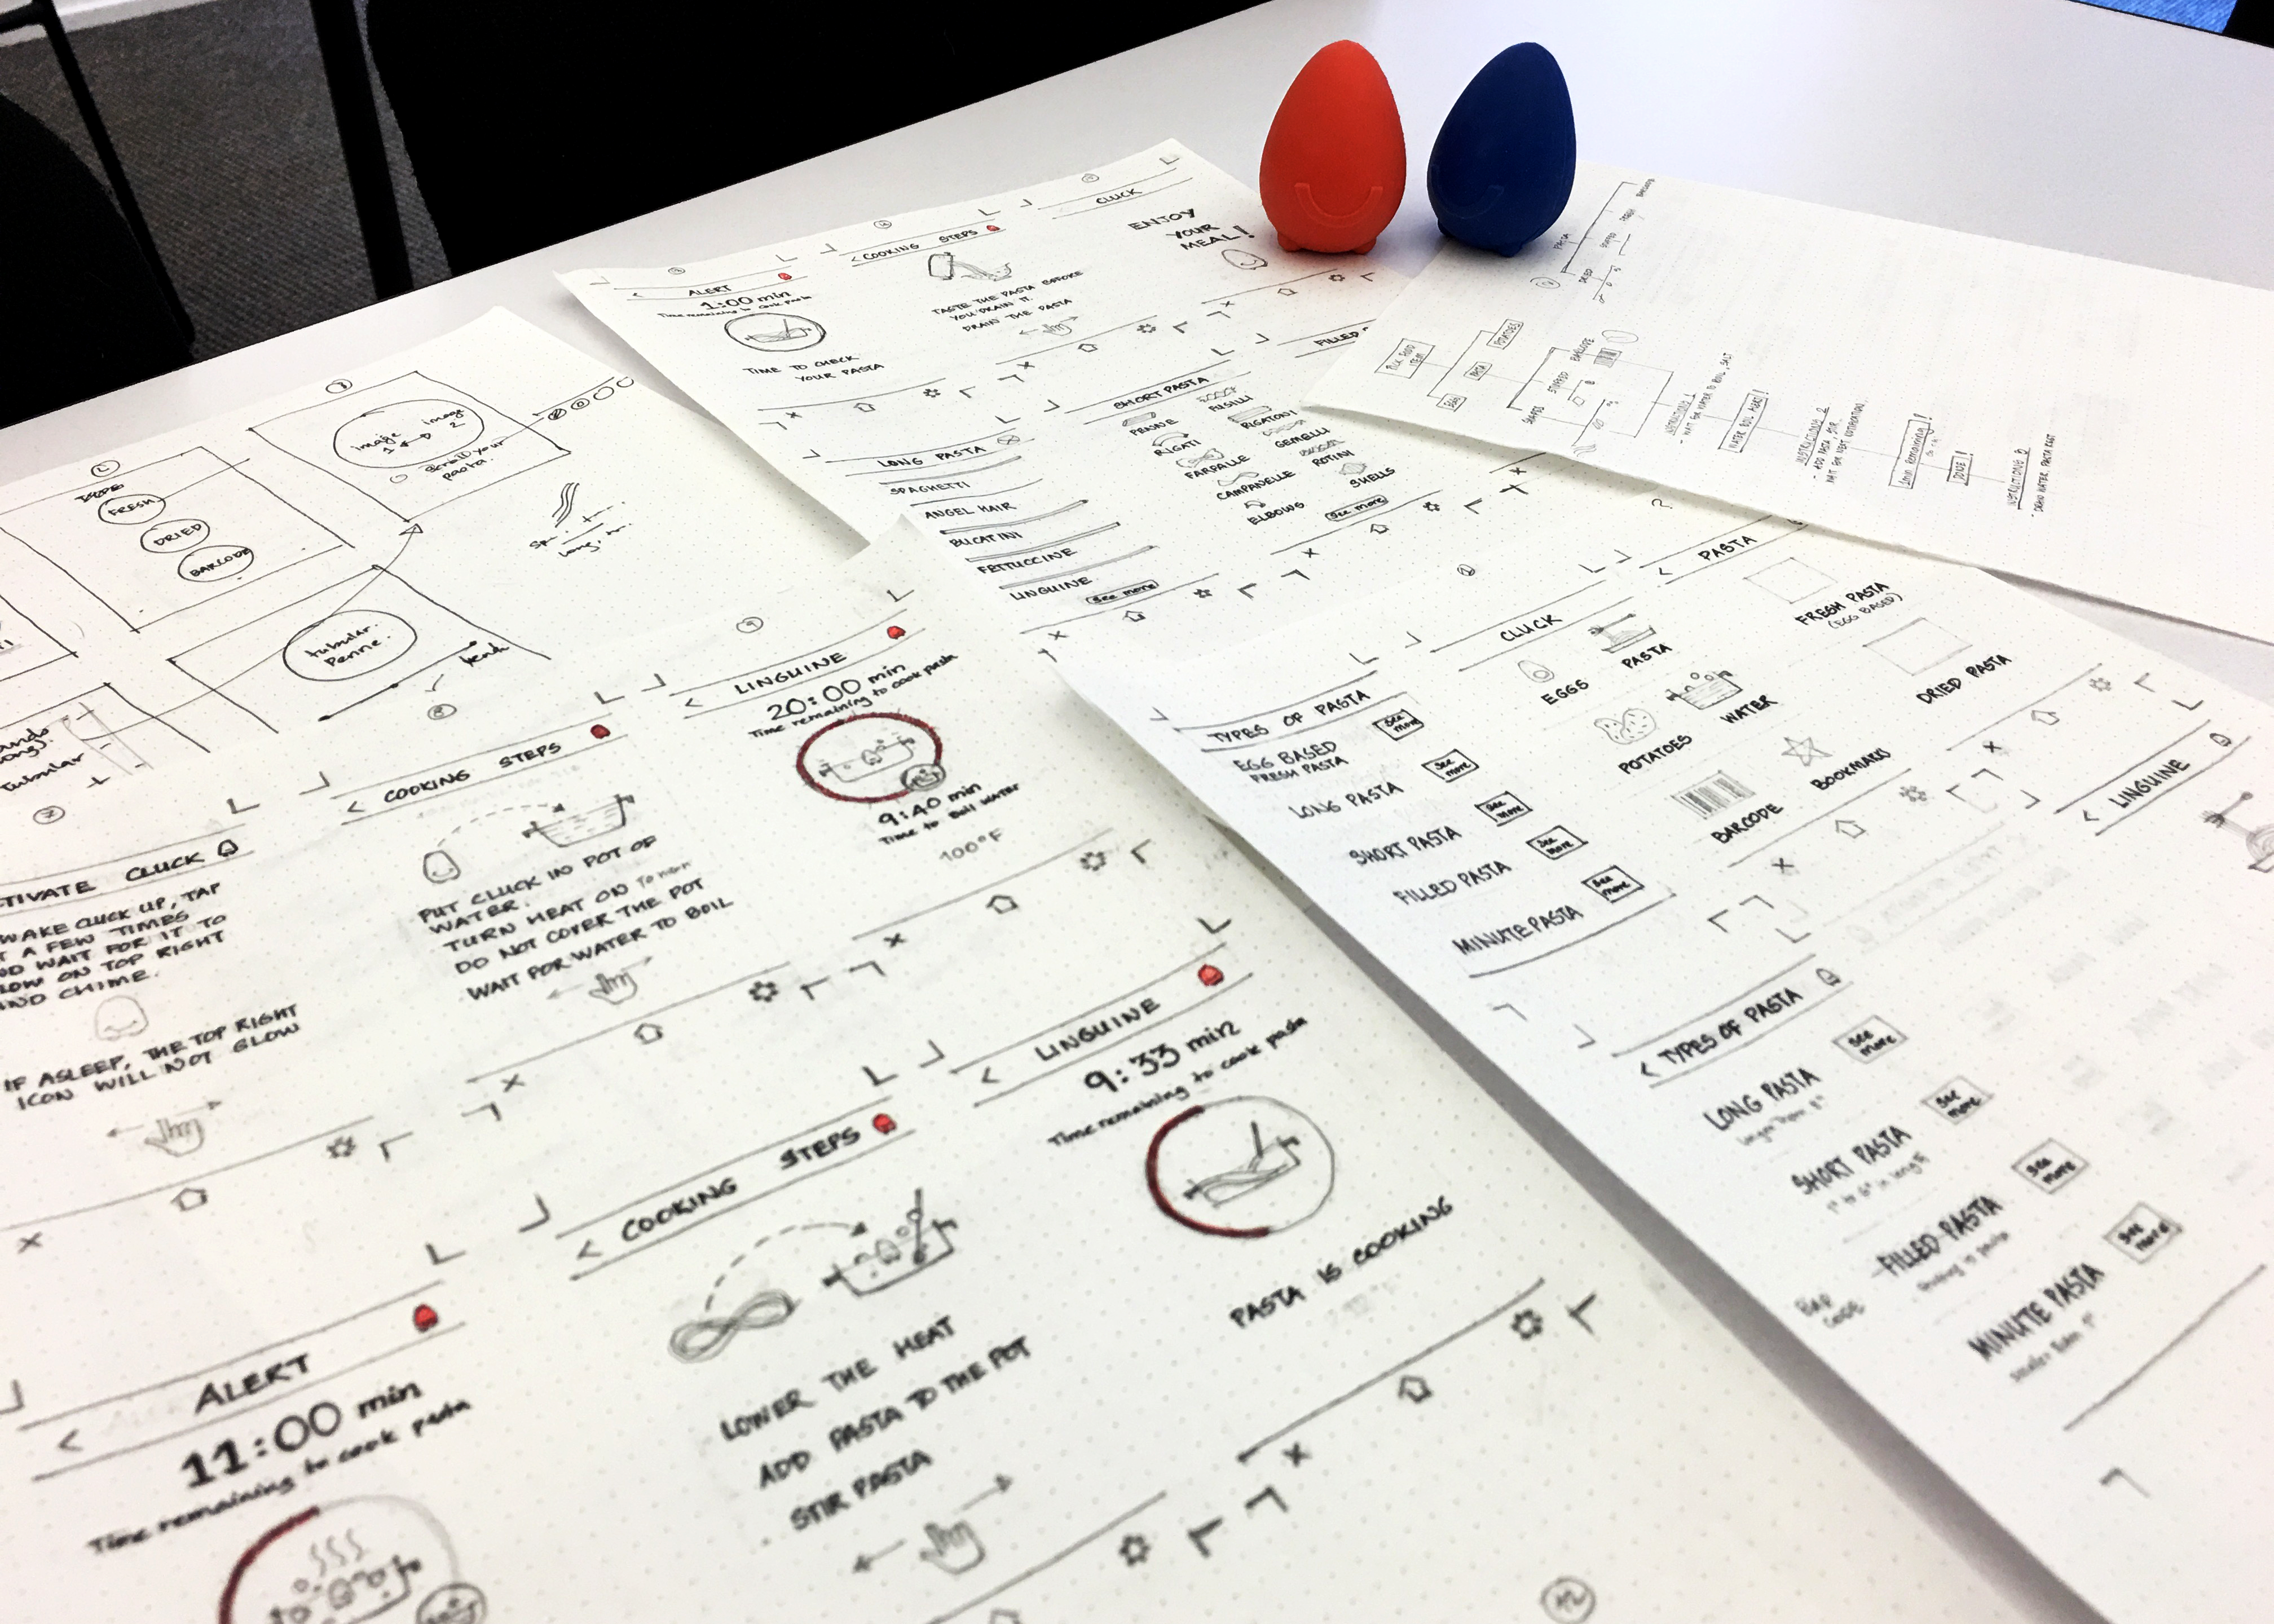 ALERT
1:00 min
Time remaining to cook pasta
TIME TO CHECK
YOUR PASTA
< COOKING STEPS
TASTE THE PASTA BEFORE
YOU DRAIN IT.
DRAIN THE PASTA
CLUCK
ENJOY
YOUR
MEAL!
LONG PASTA
SPAGHETTI
ANGEL HAIR
BUCATINI
FETTUCCINE
LINGUINE
See more
SHORT PASTA
PENNE
FUSILLI
RIGATI
RIGATONI
FARFALLE
GEMELLI
CAMPANELLE
ROTINI
ELBOWS
SHELLS
See more
FILLED
PASTA
FRESH
DRIED
POTATOES
PASTA
EGGS
BARCODE
WATER BOIL ALERT!
INSTRUCTIONS 2
DONE!
FRESH
DRIED
BARCODE
image
1
image
2
scroll your
pasta.
tubular.
Penne.
tubular
ACTIVATE CLUCK
WAKE CLUCK UP, TAP
IT A FEW TIMES
AND WAIT FOR IT TO
GLOW ON TOP RIGHT
AND CHIME.
IF ASLEEP, THE TOP RIGHT
ICON WILL NOT GLOW
< COOKING STEPS
PUT CLUCK IN POT OF
WATER.
TURN HEAT ON TO HIGH
DO NOT COVER THE POT
WAIT FOR WATER TO BOIL
9
< LINGUINE
20:00 min
Time remaining to cook pasta
9:40 min
Time to boil water
100°F
< ALERT
11:00 min
Time remaining to cook pasta
< COOKING STEPS
LOWER THE HEAT
ADD PASTA TO THE POT
STIR PASTA
< LINGUINE
9:33 min
Time remaining to cook pasta
PASTA IS COOKING
12
TYPES OF PASTA
EGG BASED
FRESH PASTA
See more
LONG PASTA
See more
SHORT PASTA
See more
FILLED PASTA
See more
MINUTE PASTA
See more
CLUCK
EGGS
PASTA
POTATOES
WATER
BARCODE
BOOKMARKS
< PASTA
FRESH PASTA
(EGG BASED)
DRIED PASTA
< TYPES OF PASTA
LONG PASTA
See more
SHORT PASTA
1" to 6" in length
See more
FILLED PASTA
See more
MINUTE PASTA
See more
BAR
CODE
< LINGUINE